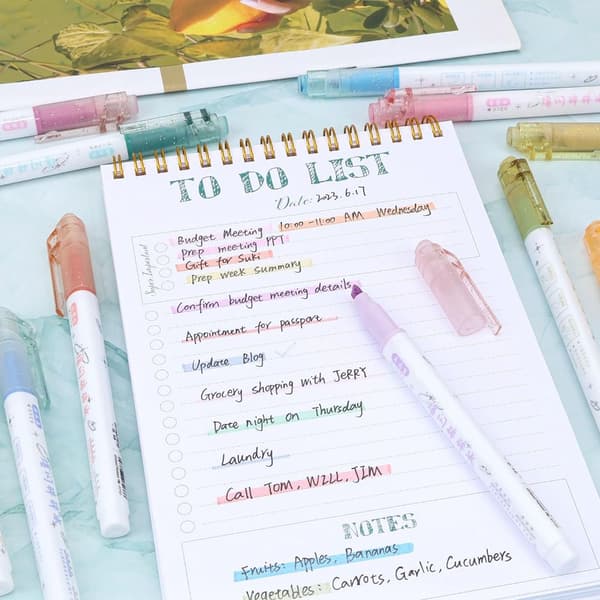 TO DO LIST
Date: 2023.6.17
Super Important
Budget Meeting 10:00-11:00 AM Wednesday
Prep meeting PPT
Gift for Suki
Prep week summary
Confirm budget meeting details
Appointment for passport
Update Blog
Grocery shopping with JERRY
Date night on Thursday
Laundry
Call TOM, WZLL, JIM
NOTES
Fruits: Apples, Bananas
Vegetables: Carrots, Garlic, Cucumbers